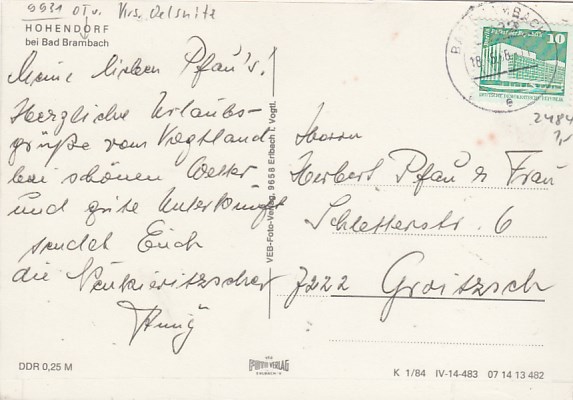 9931 OT v. Krs. Oelsnitz
HOHENDORF
bei Bad Brambach
Meine lieben Pfau's!
Herzliche Urlaubs-
grüße vom Vogtland
bei schönen Wetter
und gute Unterkunft
sendet Euch
die Neukieritzscher
DDR 0,25 M
VEB-Foto-Verlag, 9658 Erlbach i. Vogtl.
10
18.
e
2484
Herrn
Herbert Pfau u Frau
Schletterstr. 6
7222 Groitzsch
VEB
PHOTO VERLAG
ERLBACH-V
K 1/84 IV-14-483 07 14 13 482